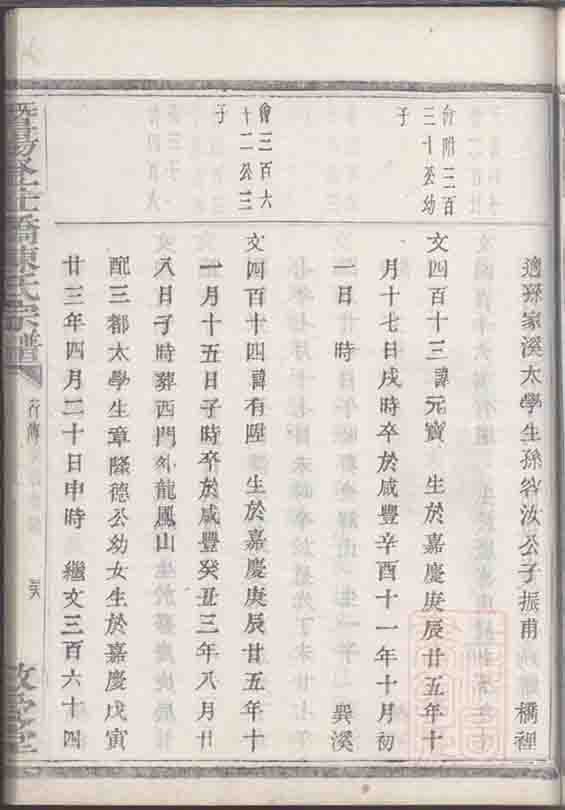 適孫家溪太學生孫谷汝公子振甫 橋裡
台附三百
三十公幼
子
文四百十三諱元寶 生於嘉慶庚辰廿五年十
月十七日戌時卒於咸豐辛酉十一年十月初
一日 時 巽溪
會三百六
十二公三
子
文四百十四諱有陞 生於嘉慶庚辰廿五年十
一月十五日子時卒於咸豐癸丑三年八月廿
八日子時葬西門外龍鳳山
配三都太學生章隆德公幼女生於嘉慶戊寅
廿三年四月二十日申時 繼文三百六十四
橋陳氏宗譜
行傳